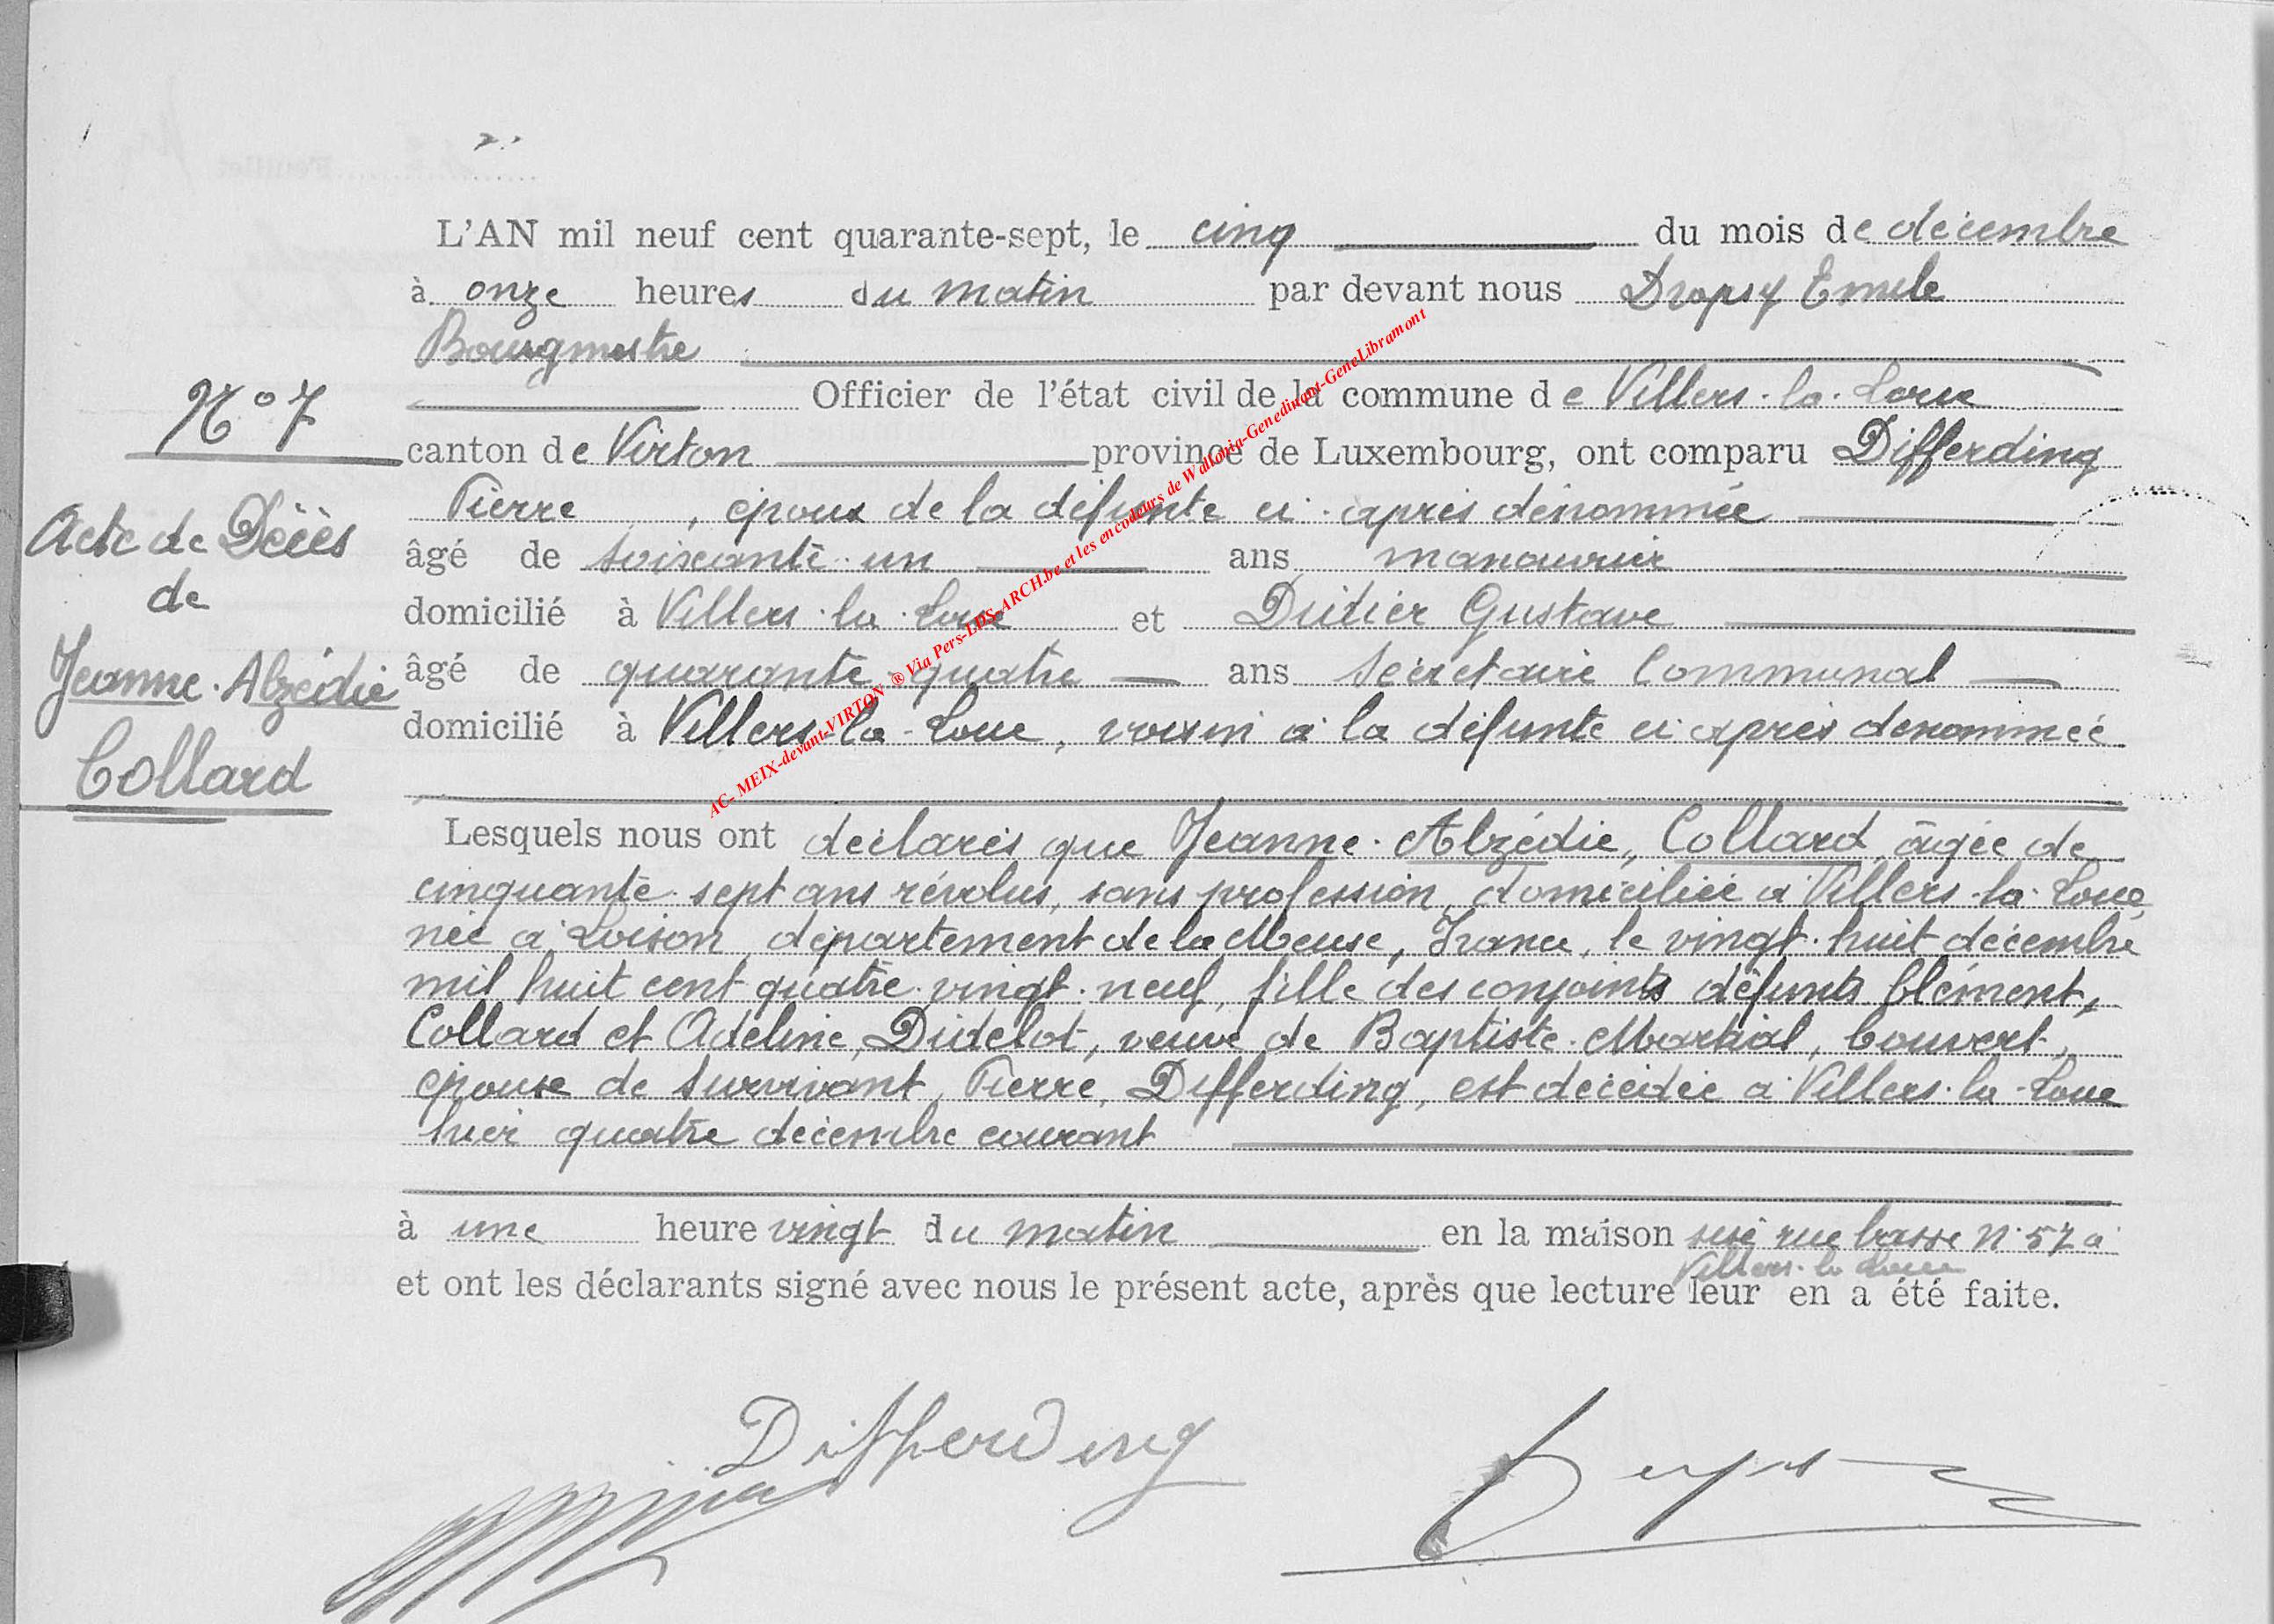 L'AN mil neuf cent quarante-sept, le cinq du mois de décembre
à onze heures du matin par devant nous Dropsy Emile
Bourgmestre
Officier de l'état civil de la commune de Villers-la-Loue
N° 7
canton de Virton province de Luxembourg, ont comparu Differding
Pierre, époux de la défunte ci-après dénommée
Acte de Décès
de
Jeanne-Alzédie
Collard
âgé de soixante-un ans manouvrier
domicilié à Villers-la-Loue et Didier Gustave
âgé de quarante quatre ans secrétaire Communal
domicilié à Villers-la-Loue, voisin à la défunte ci-après dénommée
Lesquels nous ont déclarés que Jeanne-Alzédie, Collard âgée de
cinquante-sept ans révolus, sans profession, domiciliée à Villers-la-Loue,
née à Loison, département de la Meuse, France, le vingt-huit décembre
mil huit cent quatre-vingt-neuf, fille des conjoints défunts Clément,
Collard et Adeline, Didelot, veuve de Baptiste-Martial, Couvert,
épouse de survivant, Pierre, Differding, est décédée à Villers-la-Loue
hier quatre décembre courant
à une heure vingt du matin en la maison sise rue basse N° 57 à
Villers-la-Loue
et ont les déclarants signé avec nous le présent acte, après que lecture leur en a été faite.
Differding
AC- MEIX-devant-VIRTON ®Via Pers-LDS-ARCH.be et les encodeurs de Wallonia-Genedinant-GeneLibramont